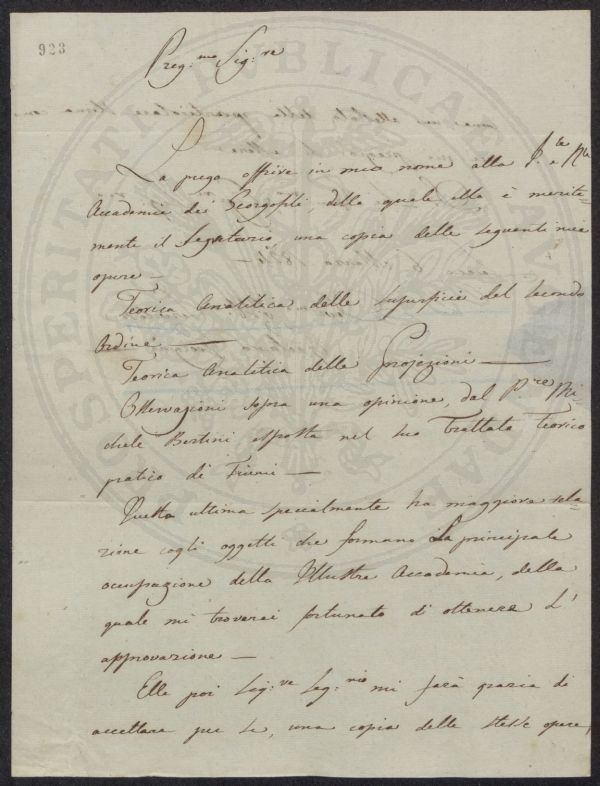 923
Preg:mo Sig:re
La prego offrire in mio nome alla
Accademia dei Georgofili, della quale ella è merite=
mente il Segretario, una copia delle seguenti mie
opere —
Teorica Analitica delle Superficie del Secondo
Ordine —
Teorica Analitica delle Projezioni —
Osservazioni sopra una opinione, dal P.re Mi
chele Bertini esposta nel suo Trattato Teorico
pratico di Fiumi —
Questa ultima specialmente ha maggiore rela=
zione cogli oggetti che formano la principale
occupazione della Illustre Accademia, della
quale mi troverai fortunato di ottenere l'
approvazione —
Ella poi Sig:re Seg:rio mi farà grazia di
accettare per se, una copia delle stesse opere,
PROSPERITATI PUBLICAE AUGENDAE